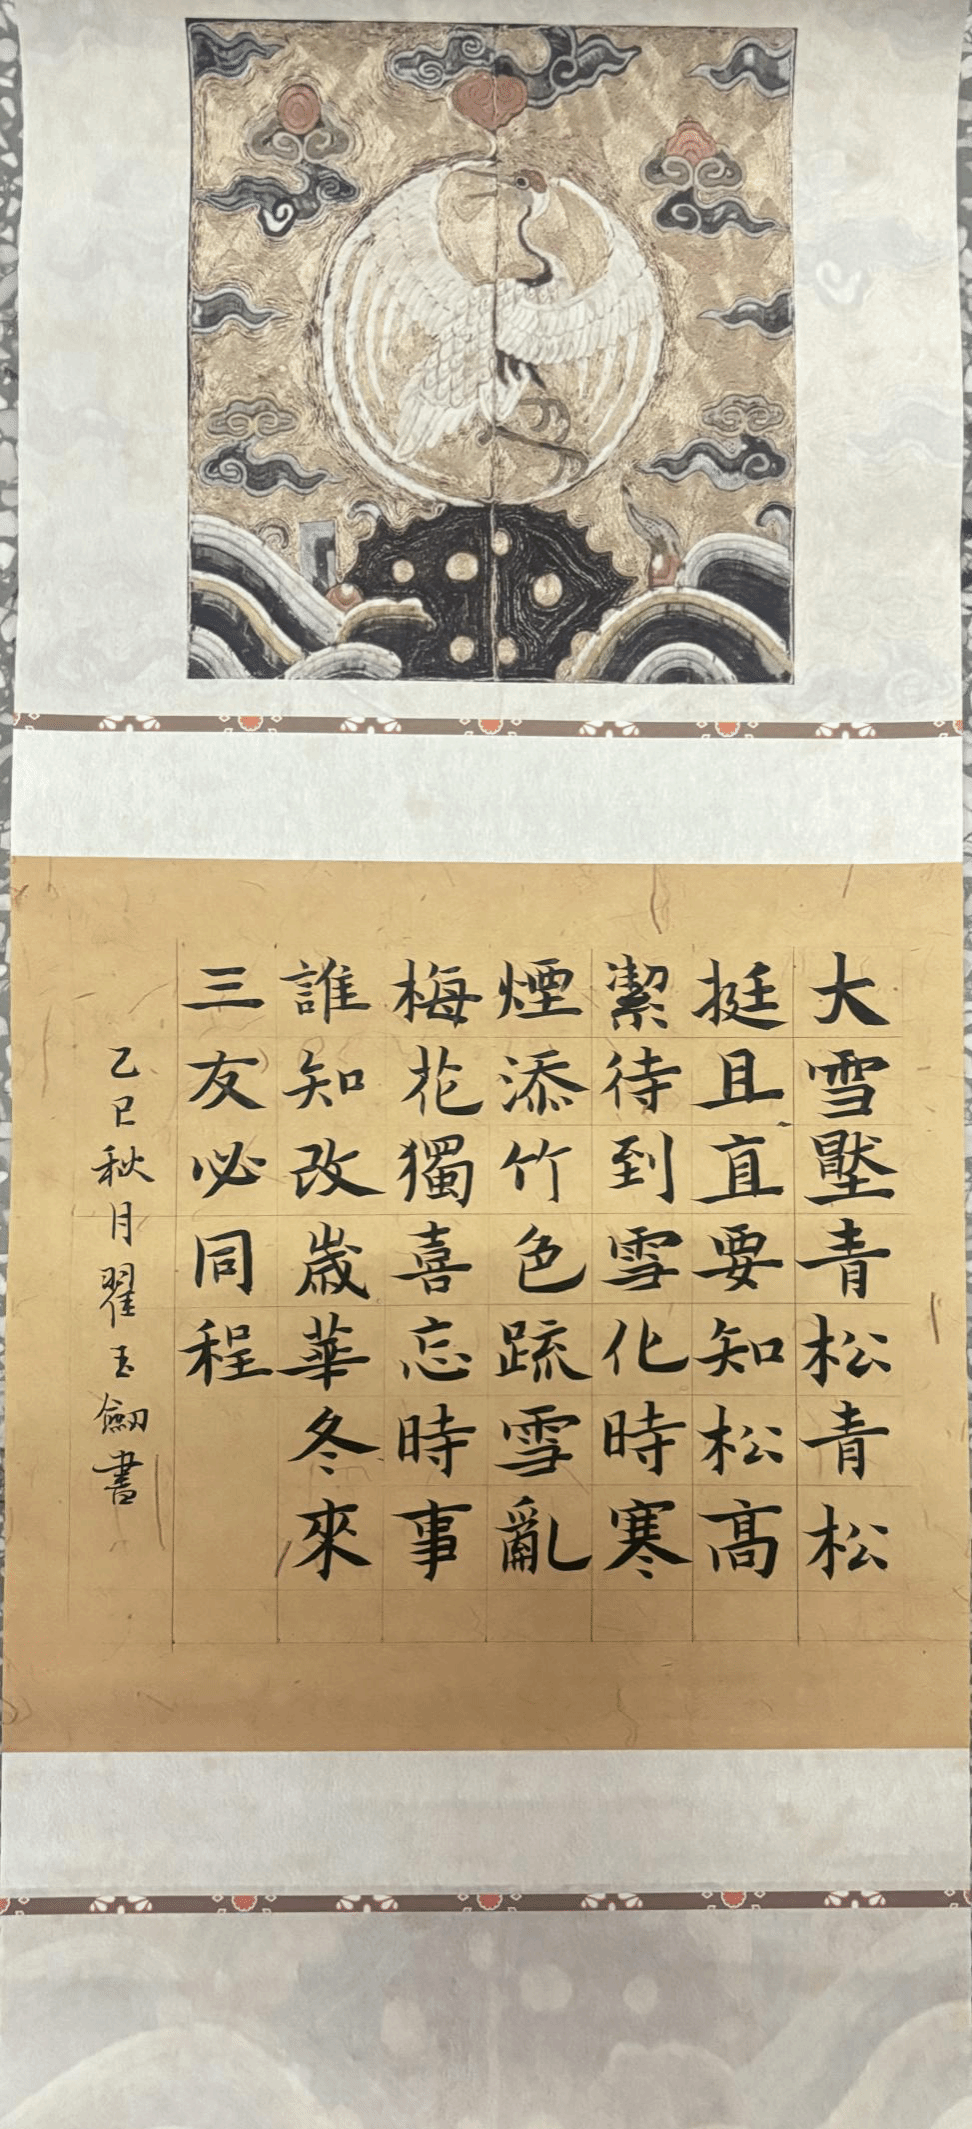 大雪壓青松青松
挺且直要知松高
潔待到雪化時寒
煙添竹色疏雪亂
梅花獨喜忘時事
誰知改歲華冬來
三友必同程
乙巳秋月翟玉劔書